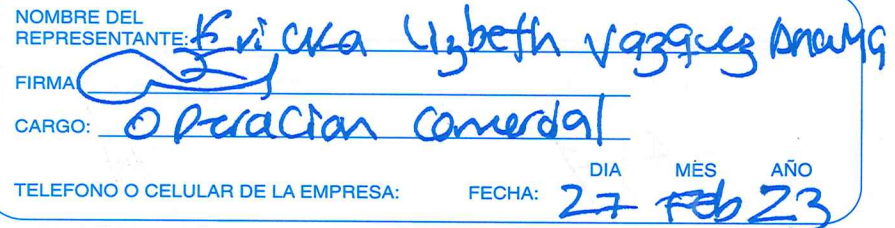 NOMBRE DEL
REPRESENTANTE: Ericka Lizbeth Vazquez Anaya
FIRMA
CARGO: Operacion comercial
DIA MES AÑO
TELEFONO O CELULAR DE LA EMPRESA: FECHA: 27 Feb 23